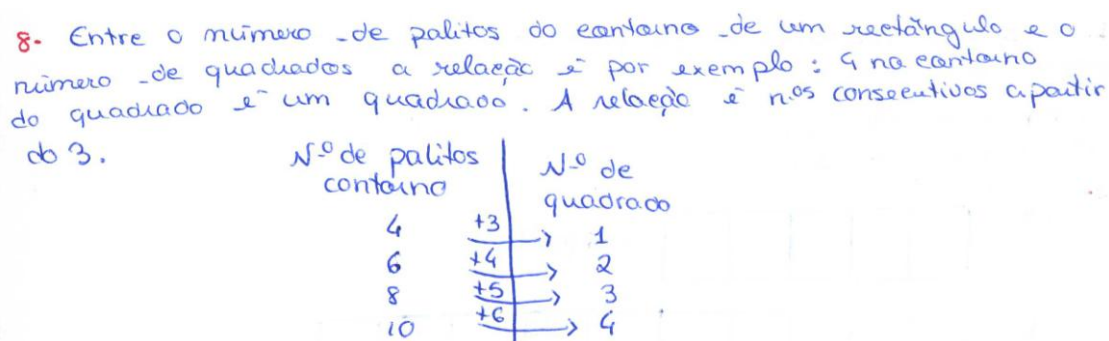 8- Entre o número de palitos do contorno de um rectângulo e o
número de quadrados a relação é por exemplo: 4 no contorno
do quadrado é um quadrado. A relação é n.os consecutivos apartir
do 3.
Nº de palitos contorno | Nº de quadrado
4 +3 → 1
6 +4 → 2
8 +5 → 3
10 +6 → 4